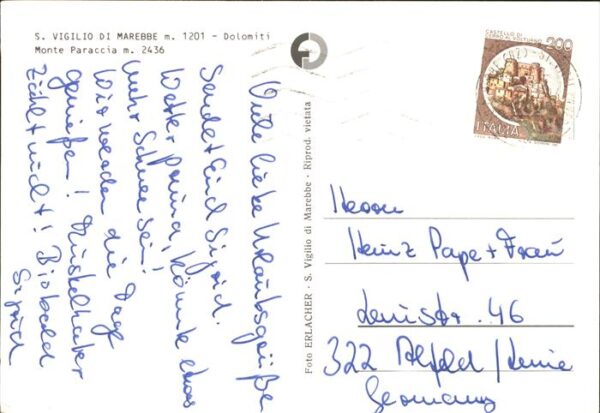 S. VIGILIO DI MAREBBE m. 1201 - Dolomiti
Monte Paraccia m. 2436
Viele liebe Urlaubsgrüße
Sendet Sigrid.
Wetter prima, könnte etwas
mehr Schnee sein!
Wir werden die Tage
genießen! Muskelkater
zählt nicht! Bis bald
Sigrid
Foto ERLACHER - S. Vigilio di Marebbe - Riprod. vietata
CASTELLO DI
CERRO AL VOLTURNO
200
ITALIA
Herrn
Heinz Pape + Frau
46
322 Alfeld / Leine
Germany